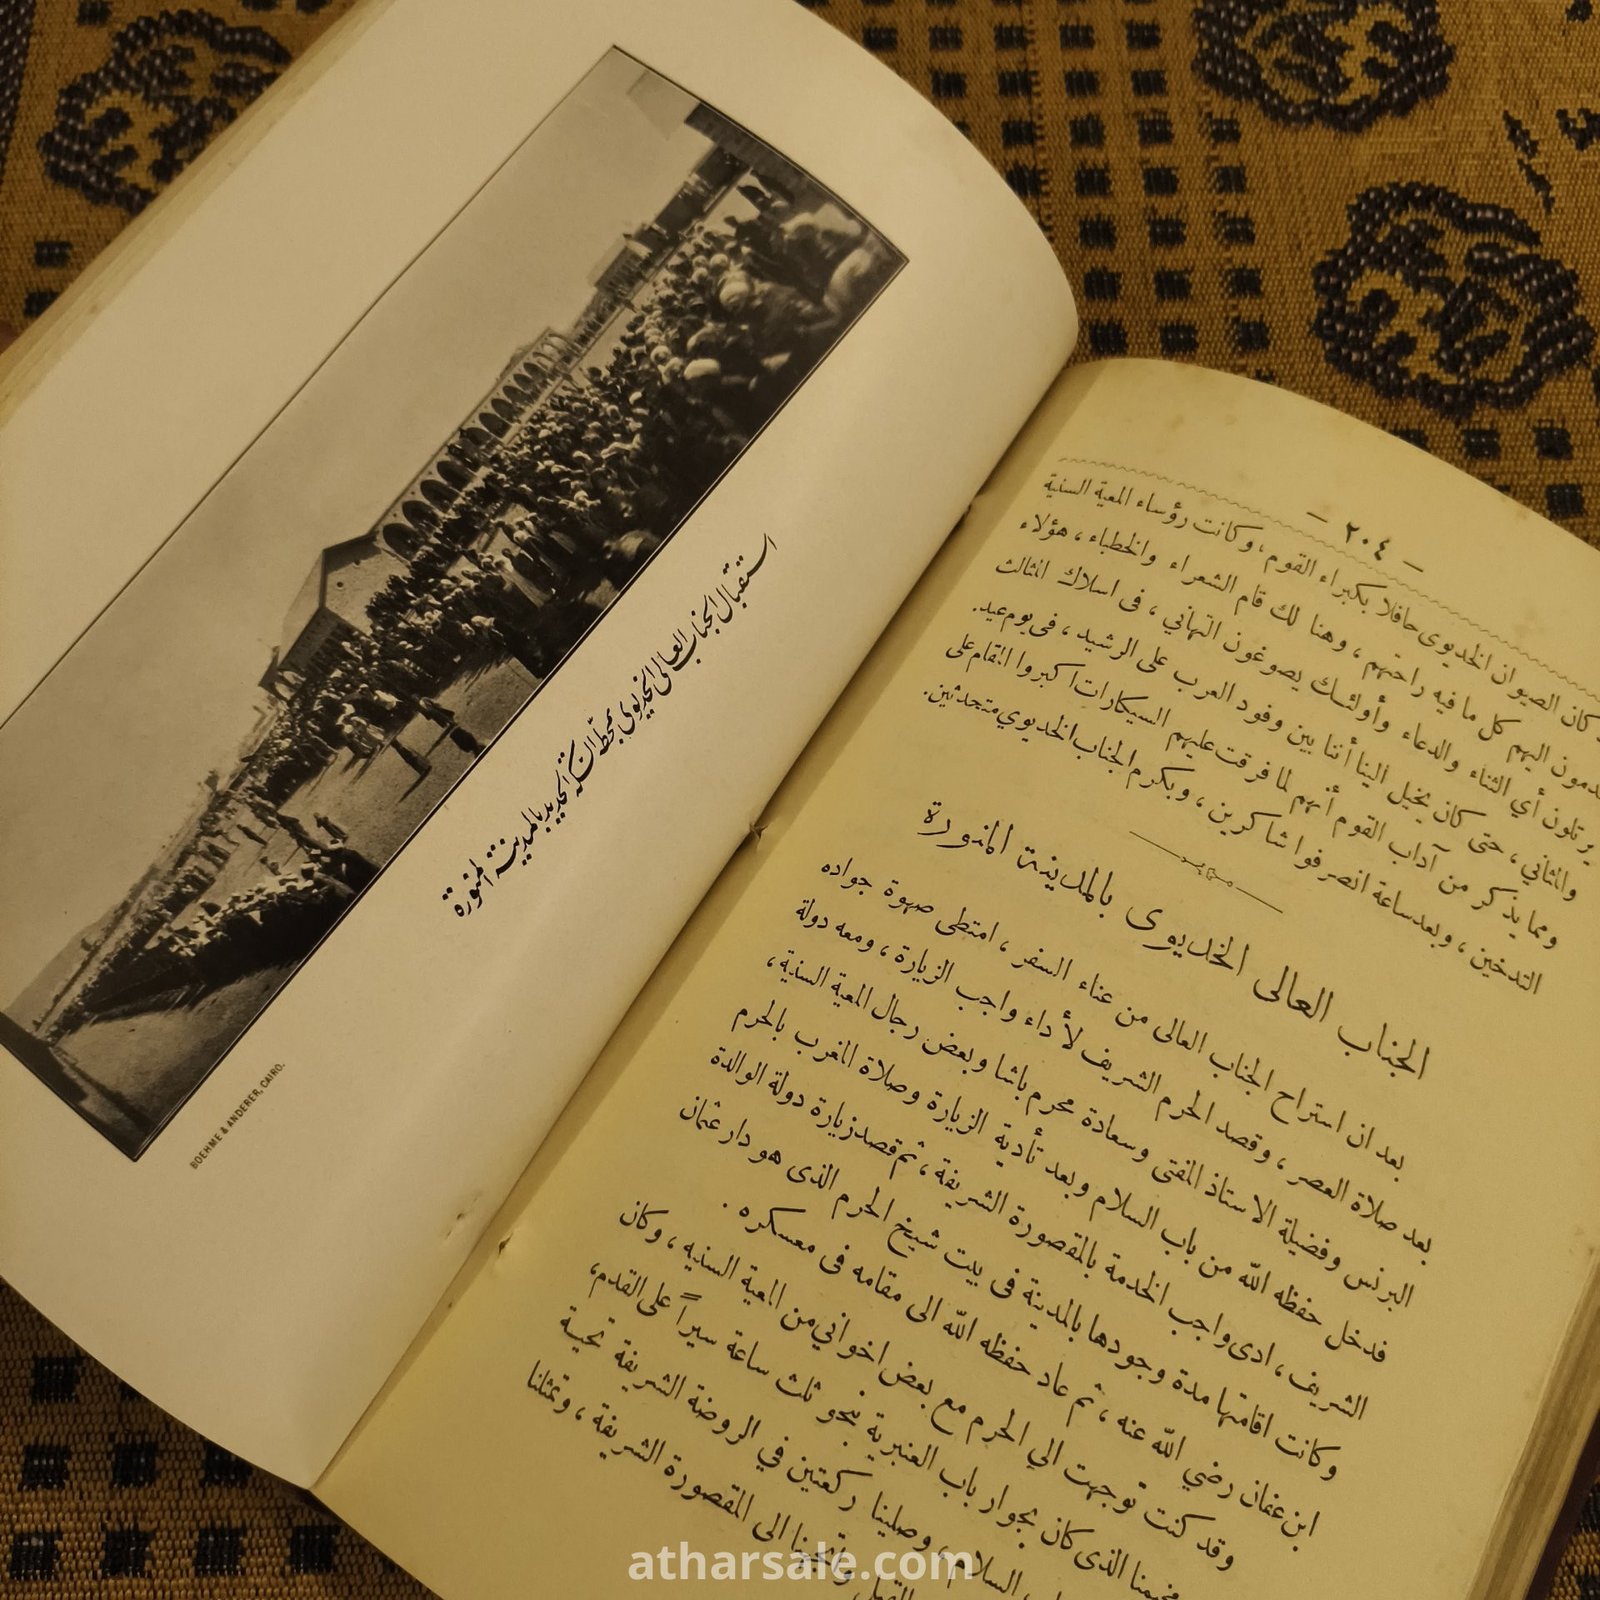 استقبال الجناب العالى الخديوى بمحطة السكة الحديد بالمدينة المنورة
BOEHME & ANDERER, CAIRO.
— ٢٠٤ —
كان الصيوان الخديوى حافلا بكبراء القوم، وكانت رؤساء المعية السنية
يقدمون اليهم كل ما فيه راحتهم، وهنا لك قام الشعراء والخطباء، هؤلاء
يرتلون أي الثناء والدعاء وأولئك يصوغون التهاني، فى اسلاك المثالث
والمثاني، حتى كان يخيل الينا أننا بين وفود العرب على الرشيد، فى يوم عيد.
ومما يذكر من آداب القوم أنهم لما فرقت عليهم السيكارات اكبروا المقام على
التدخين، وبعد ساعة انصرفوا شاكرين، وبكرم الجناب الخديوي متحدثين.
الجناب العالى الخديوى بالمدينة المنورة
بعد ان استراح الجناب العالى من عناء السفر، امتطى صهوة جواده
بعد صلاة العصر، وقصد الحرم الشريف لأداء واجب الزيارة، ومعه دولة
البرنس وفضيلة الاستاذ المفتى وسعادة محرم باشا وبعض رجال المعية السنية،
فدخل حفظه الله من باب السلام وبعد تأدية الزيارة وصلاة المغرب بالحرم
الشريف، ادى واجب الخدمة بالمقصورة الشريفة، ثم قصد زيارة دولة الوالدة
وكانت اقامتها مدة وجودها بالمدينة فى بيت شيخ الحرم الذى هو دار عثمان
ابن عفان رضي الله عنه، ثم عاد حفظه الله الى مقامه فى معسكره.
وقد كنت توجهت الي الحرم مع بعض اخواني من المعية السنيه، وكان
مخيمنا الذى كان بجوار باب العنبرية بنحو ثلث ساعة سيراً على القدم،
السلام، وصلينا ركعتين في الروضة الشريفة تحية
وتجهنا الى المقصورة الشريفة، وتمثلنا
atharsale.com